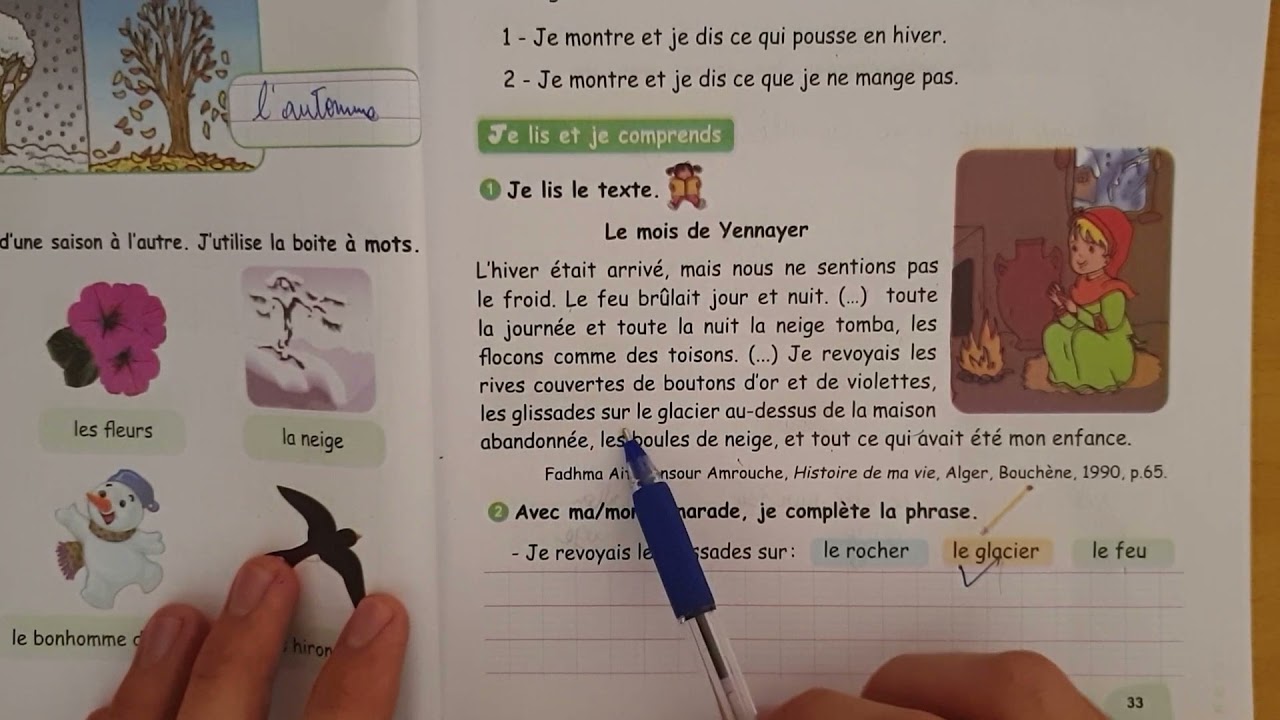 l'automne
d'une saison à l'autre. J'utilise la boite à mots.
les fleurs
la neige
le bonhomme
1 - Je montre et je dis ce qui pousse en hiver.
2 - Je montre et je dis ce que je ne mange pas.
Je lis et je comprends
1 Je lis le texte.
Le mois de Yennayer
L'hiver était arrivé, mais nous ne sentions pas
le froid. Le feu brûlait jour et nuit. (...) toute
la journée et toute la nuit la neige tomba, les
flocons comme des toisons. (...) Je revoyais les
rives couvertes de boutons d'or et de violettes,
les glissades sur le glacier au-dessus de la maison
abandonnée, les boules de neige, et tout ce qui avait été mon enfance.
Fadhma Amrouche, Histoire de ma vie, Alger, Bouchène, 1990, p.65.
2 Avec je complète la phrase.
- Je revoyais sur : le rocher le glacier le feu
33